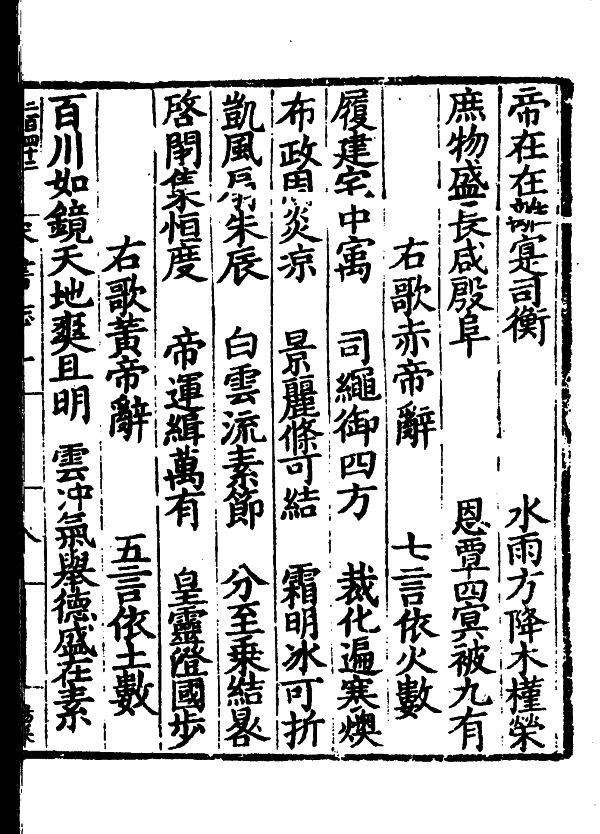 帝在在離寔司衡　水雨方降木槿榮
庶物盛長咸殷阜　恩覃四冥被九有
右歌赤帝辭　七言依火數
履建宅中㝢　司繩御四方　裁化遍寒燠
布政周炎凉　景麗條可結　霜明冰可折
凱風扇朱辰　白雲流素節　分至乗結晷
啓閉集恒度　帝運緝萬有　皇靈澄國步
右歌黃帝辭　五言依土數
百川如鏡天地爽且明　雲沖氣舉德盛在素
二百四十二